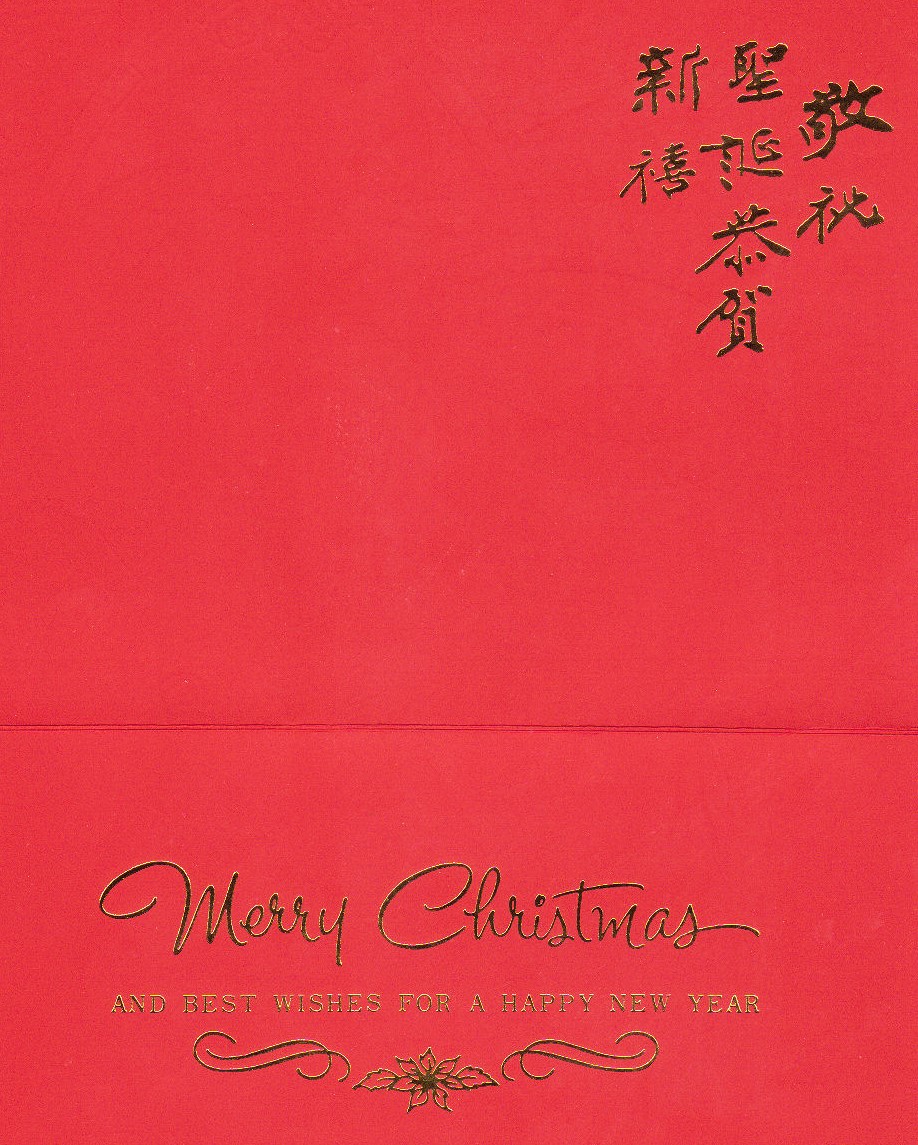 敬祝
聖誕恭賀
新禧
Merry Christmas
AND BEST WISHES FOR A HAPPY NEW YEAR